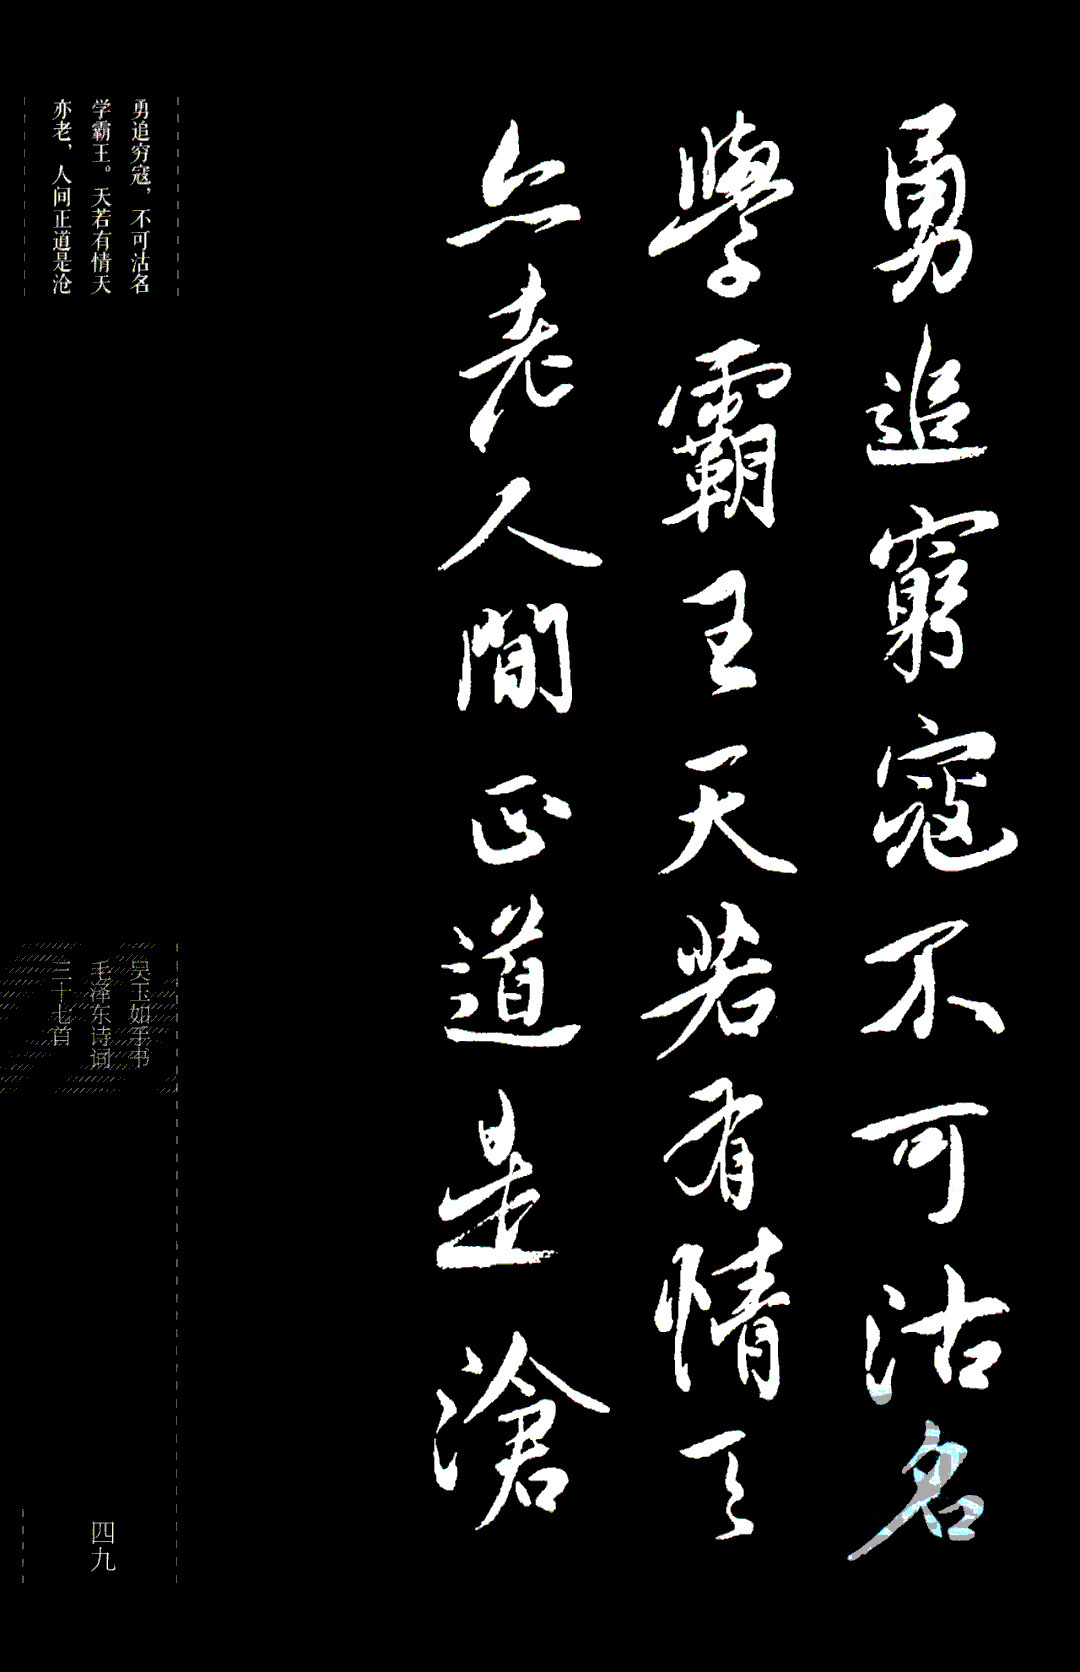 勇追窮寇不可沽名
學霸王天若有情天
亦老人間正道是滄
勇追穷寇，不可沽名
学霸王。天若有情天
亦老，人间正道是沧
吴玉如手书
毛泽东诗词
三十七首
四九